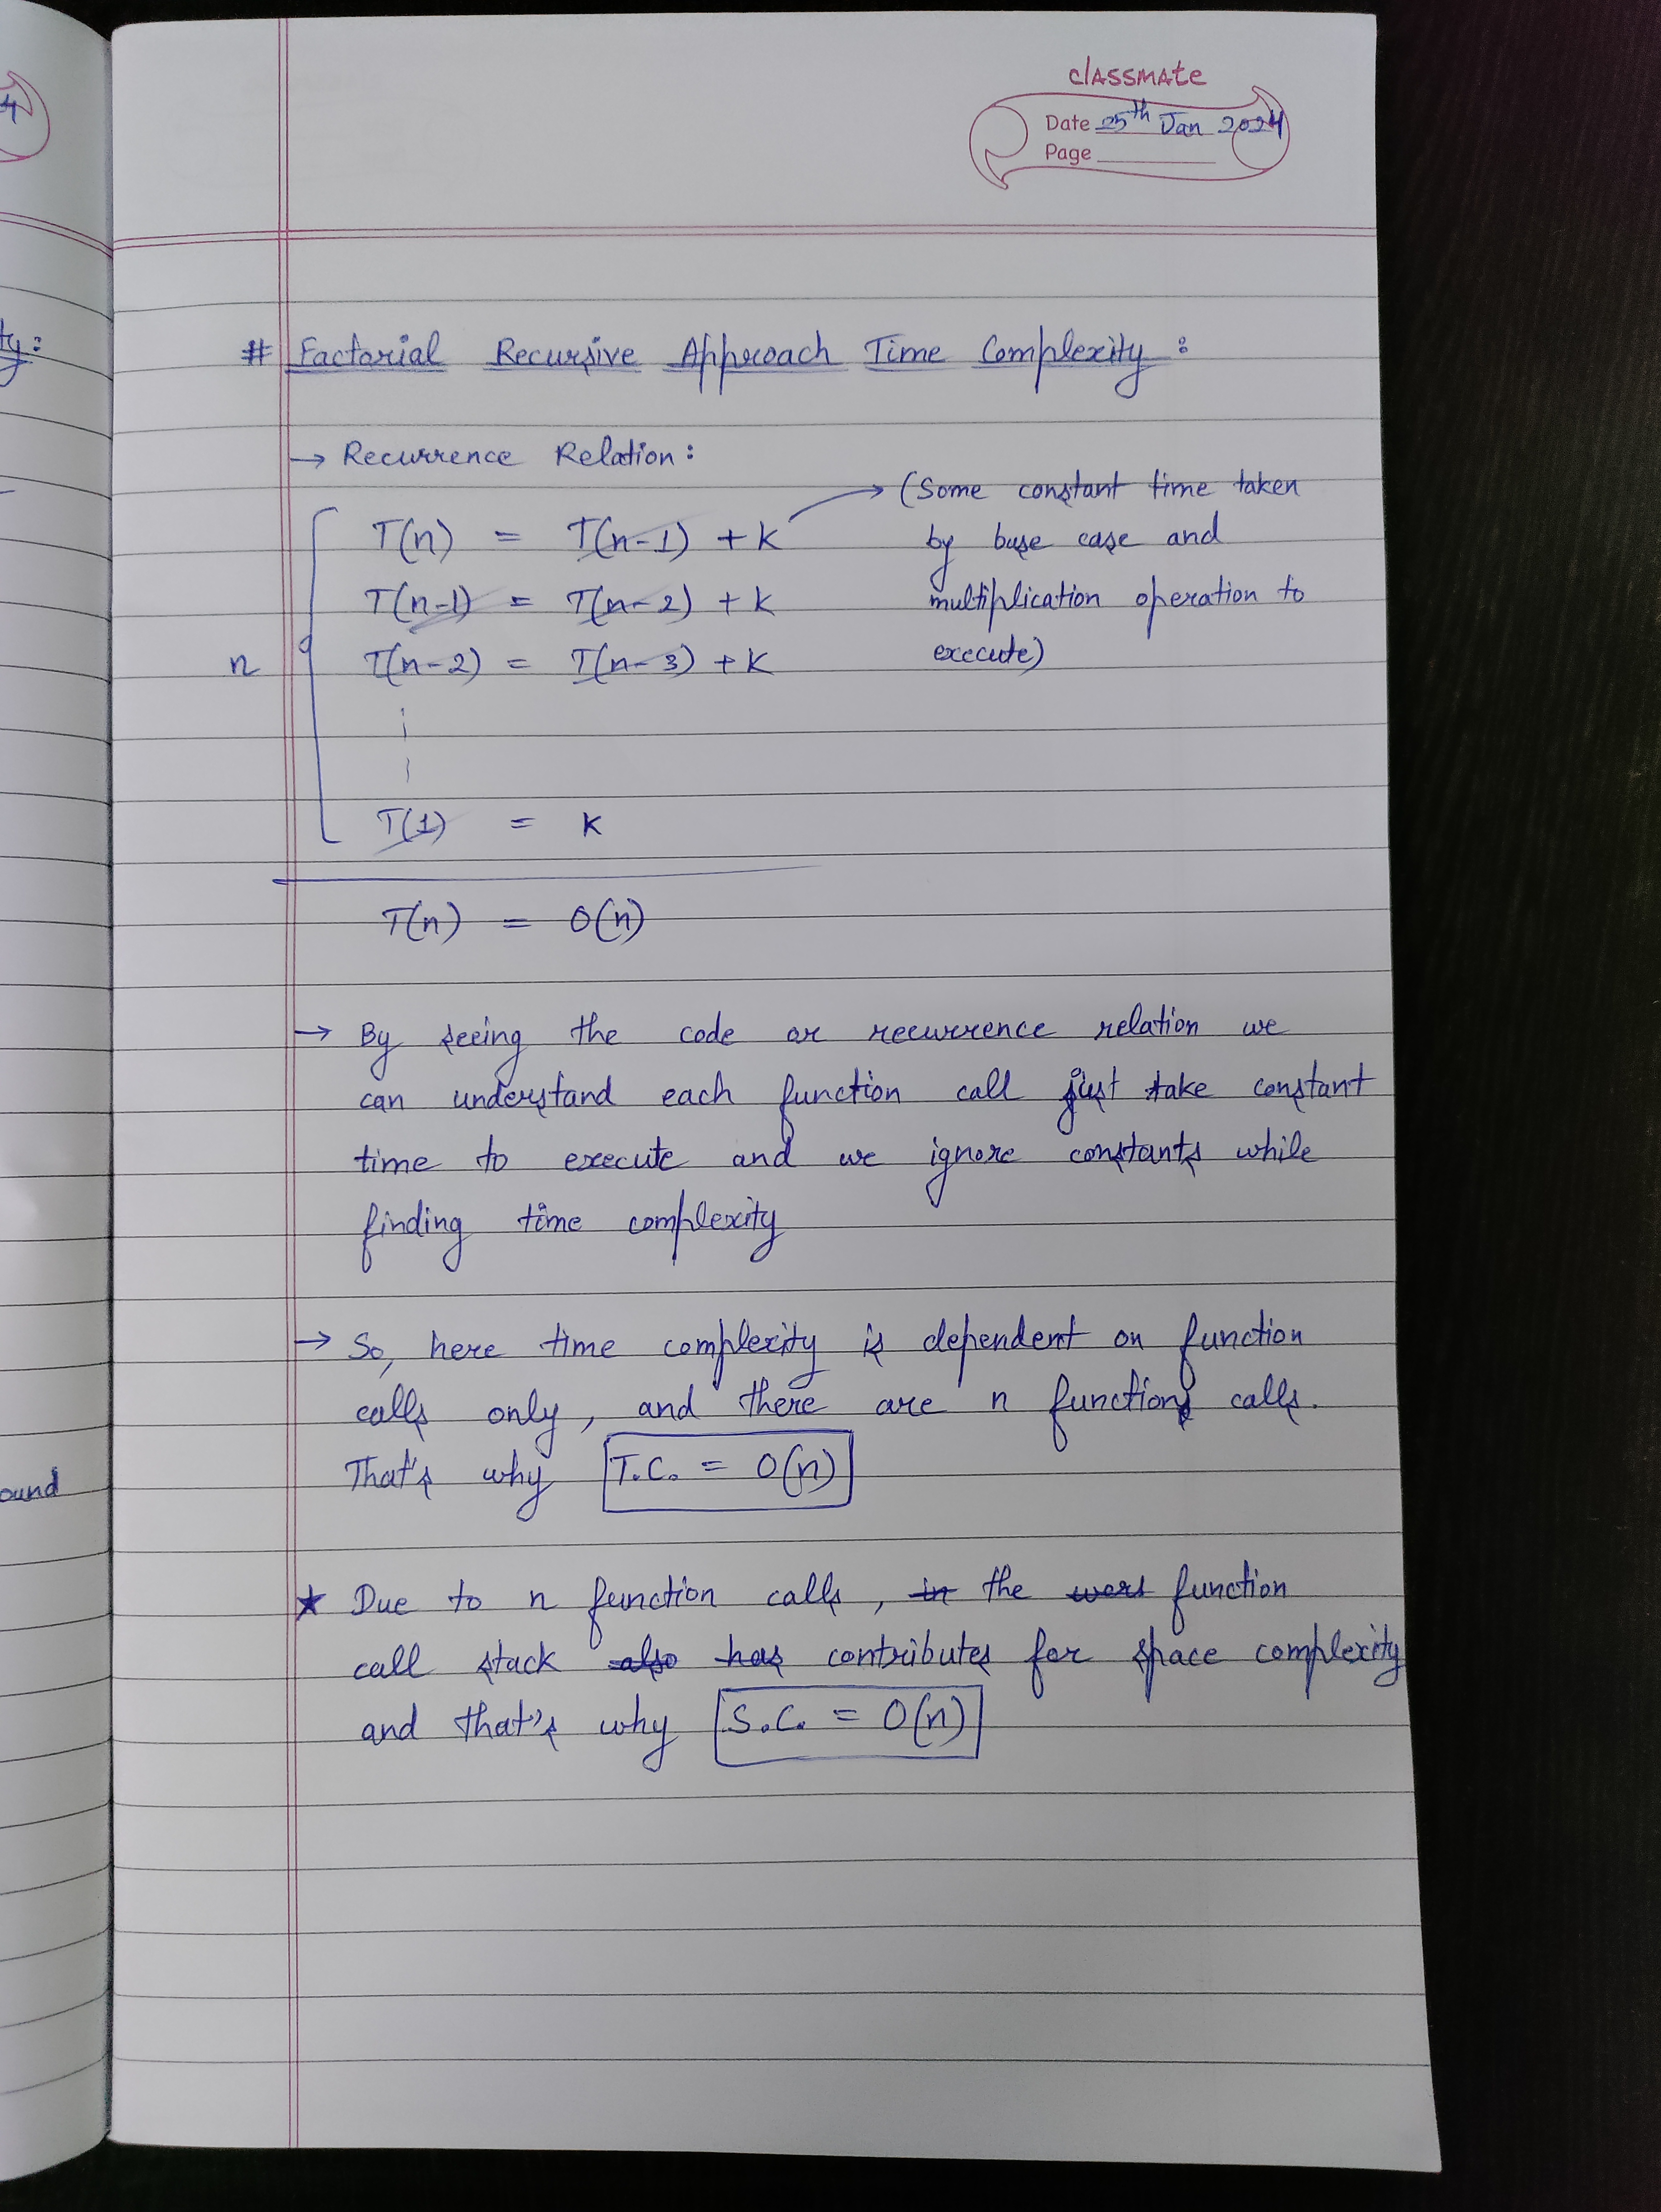 classmate
Date 25th Jan 2024
Page
4
ty:
# Factorial Recursive Approach Time Complexity :
→ Recurrence Relation :
T(n) = T(n-1) + K → (Some constant time taken
by base case and
T(n-1) = T(n-2) + K multiplication operation to
n T(n-2) = T(n-3) + K execute)
T(1) = K
T(n) = O(n)
→ By seeing the code or recurrence relation we
can understand each function call just take constant
time to execute and we ignore constants while
finding time complexity
→ So, here time complexity is dependent on function
calls only, and there are n function calls.
ound
That's why T.C. = O(n)
★ Due to n function calls, in the function
call stack also has contributes for space complexity
and that's why S.C. = O(n)